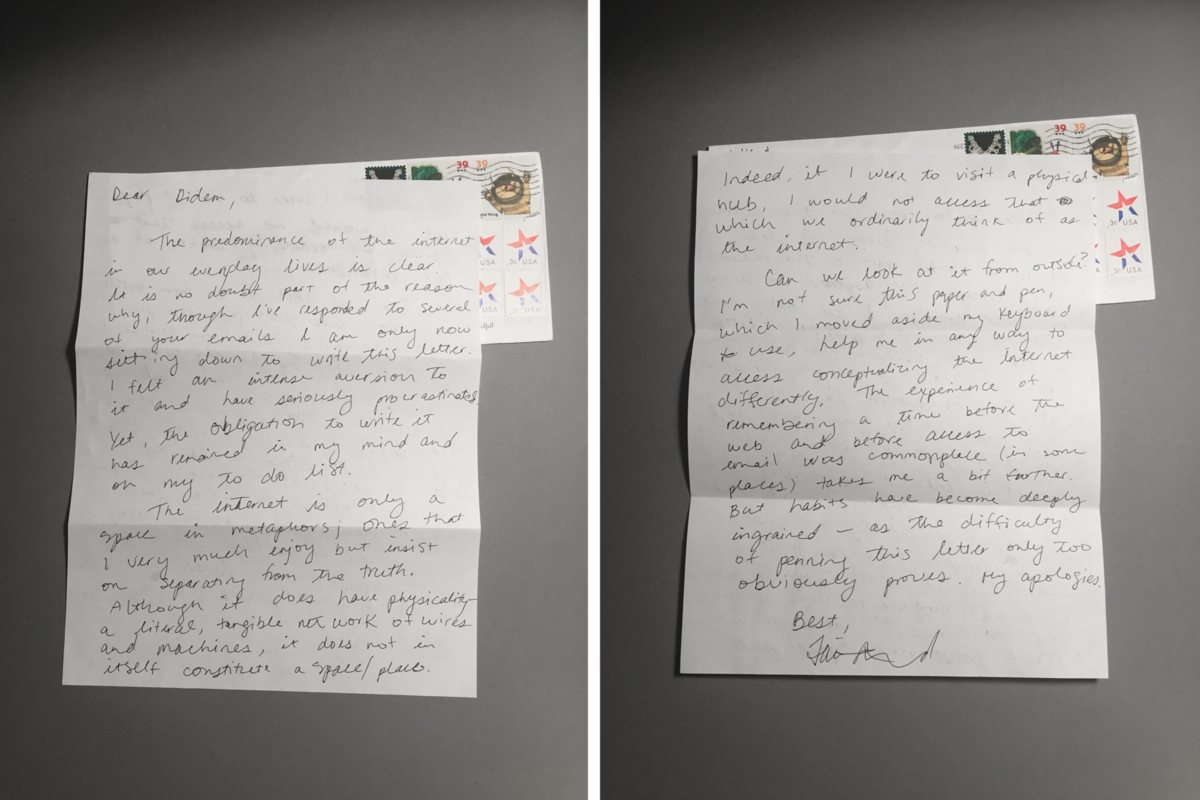 Dear Didem,
The predominance of the internet
in our everyday lives is clear.
It is no doubt part of the reason
why, though I've responded to several
of your emails I am only now
sitting down to write this letter.
I felt an intense aversion to
it and have seriously procrastinated.
Yet, the obligation to write it
has remained in my mind and
on my to do list.
The internet is only a
space in metaphors; ones that
I very much enjoy but insist
on separating from the truth.
Although it does have physicality—
a literal, tangible network of wires
and machines, it does not in
itself constitute a space/place.
39 39
USA USA
Indeed, if I were to visit a physical
hub, I would not access that
which we ordinarily think of as
the internet.
Can we look at it from outside?
I'm not sure this paper and pen,
which I moved aside my keyboard
to use, help me in any way to
access conceptualizing the Internet
differently. The experience of
remembering a time before the
web and before access to
email was commonplace (in some
places) takes me a bit farther.
But habits have become deeply
ingrained – as the difficulty
of penning this letter only too
obviously proves. My apologies.
Best,
39 39
USA
USA